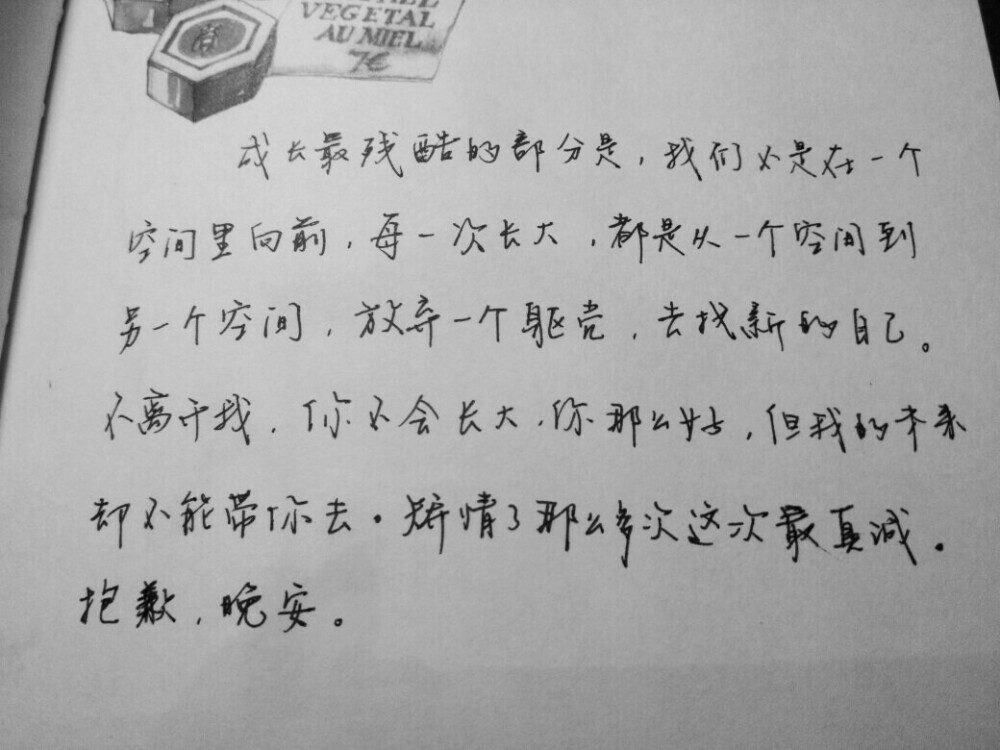 VEGETAL
AU MIEL
7€
成长最残酷的部分是，我们不是在一个
空间里向前，每一次长大，都是从一个空间到
另一个空间，放弃一个躯壳，去找新的自己。
不离开我，你不会长大，你那么好，但我的未来
却不能带你去。矫情了那么多次这次最真诚。
抱歉，晚安。